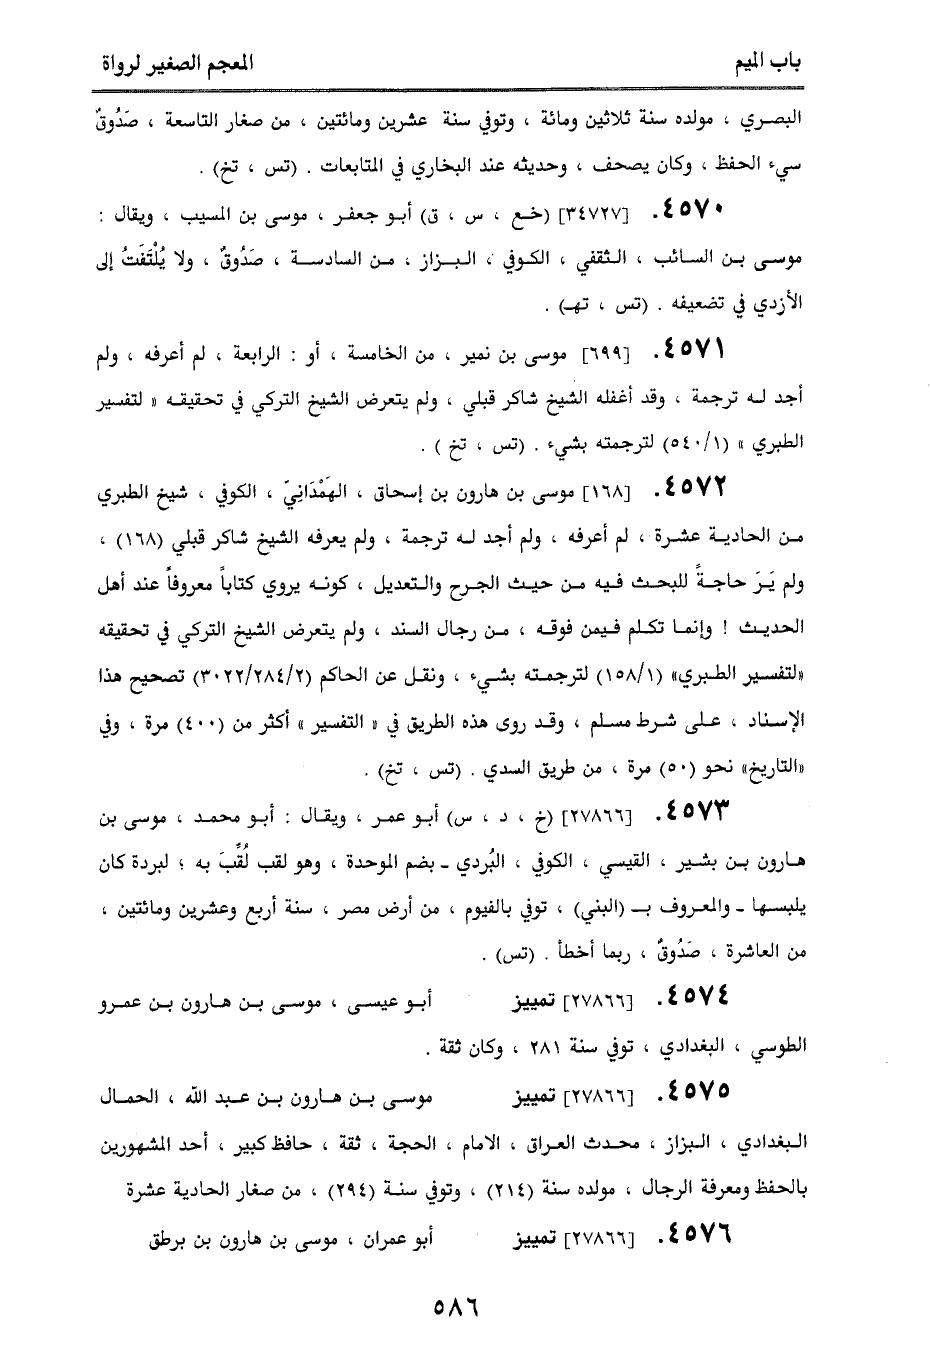 باب الميم
المعجم الصغير لرواة
البصري ، مولده سنة ثلاثين ومائة ، وتوفي سنة عشرين ومائتين ، من صغار التاسعة ، صَدُوقٌ
سيء الحفظ ، وكان يصحف ، وحديثه عند البخاري في المتابعات . (تس ، تخ) .
٤٥٧٠. [٣٤٧٢٧] (خع ، س ، ق) أبو جعفر ، موسى بن المسيب ، ويقال :
موسى بن السائب ، الثقفي ، الكوفي ، البزاز ، من السادسة ، صَدُوقٌ ، ولا يُلْتَفَتُ إلى
الأزدي في تضعيفه . (تس ، تهـ) .
٤٥٧١. [٦٩٩] موسى بن نمير ، من الخامسة ، أو : الرابعة ، لم أعرفه ، ولم
أجد له ترجمة ، وقد أغفله الشيخ شاكر قبلي ، ولم يتعرض الشيخ التركي في تحقيقه « لتفسير
الطبري » (٥٤٠/١) لترجمته بشيء . (تس ، تخ ) .
٤٥٧٢. [١٦٨] موسى بن هارون بن إسحاق ، الهَمْدَانِيّ ، الكوفي ، شيخ الطبري
من الحادية عشرة ، لم أعرفه ، ولم أجد له ترجمة ، ولم يعرفه الشيخ شاكر قبلي (١٦٨) ،
ولم يَرَ حاجةً للبحث فيه من حيث الجرح والتعديل ، كونه يروي كتاباً معروفاً عند أهل
الحديث ! وإنما تكلم فيمن فوقه ، من رجال السند ، ولم يتعرض الشيخ التركي في تحقيقه
«لتفسير الطبري» (١٥٨/١) لترجمته بشيء ، ونقل عن الحاكم (٣٠٢٢/٢٨٤/٢) تصحيح هذا
الإسناد ، على شرط مسلم ، وقد روى هذه الطريق في « التفسير » أكثر من (٤٠٠) مرة ، وفي
«التاريخ» نحو (٥٠) مرة ، من طريق السدي . (تس ، تخ) .
٤٥٧٣. [٢٧٨٦٦] (خ ، د ، س) أبو عمر ، ويقال : أبو محمد ، موسى بن
هارون بن بشير ، القيسي ، الكوفي ، البُردي ـ بضم الموحدة ، وهو لقب لُقِّبَ به ؛ لبردة كان
يلبسها ـ والمعروف بـ (البني) ، توفي بالفيوم ، من أرض مصر ، سنة أربع وعشرين ومائتين ،
من العاشرة ، صَدُوقٌ ، ربما أخطأ . (تس) .
٤٥٧٤. [٢٧٨٦٦] تمييز أبو عيسى ، موسى بن هارون بن عمرو
الطوسي ، البغدادي ، توفي سنة ٢٨١ ، وكان ثقة .
٤٥٧٥. [٢٧٨٦٦] تمييز موسى بن هارون بن عبد الله ، الحمال
البغدادي ، البزاز ، محدث العراق ، الامام ، الحجة ، ثقة ، حافظ كبير ، أحد المشهورين
بالحفظ ومعرفة الرجال ، مولده سنة (٢١٤) ، وتوفي سنة (٢٩٤) ، من صغار الحادية عشرة
٤٥٧٦. [٢٧٨٦٦] تمييز أبو عمران ، موسى بن هارون بن برطق
٥٨٦